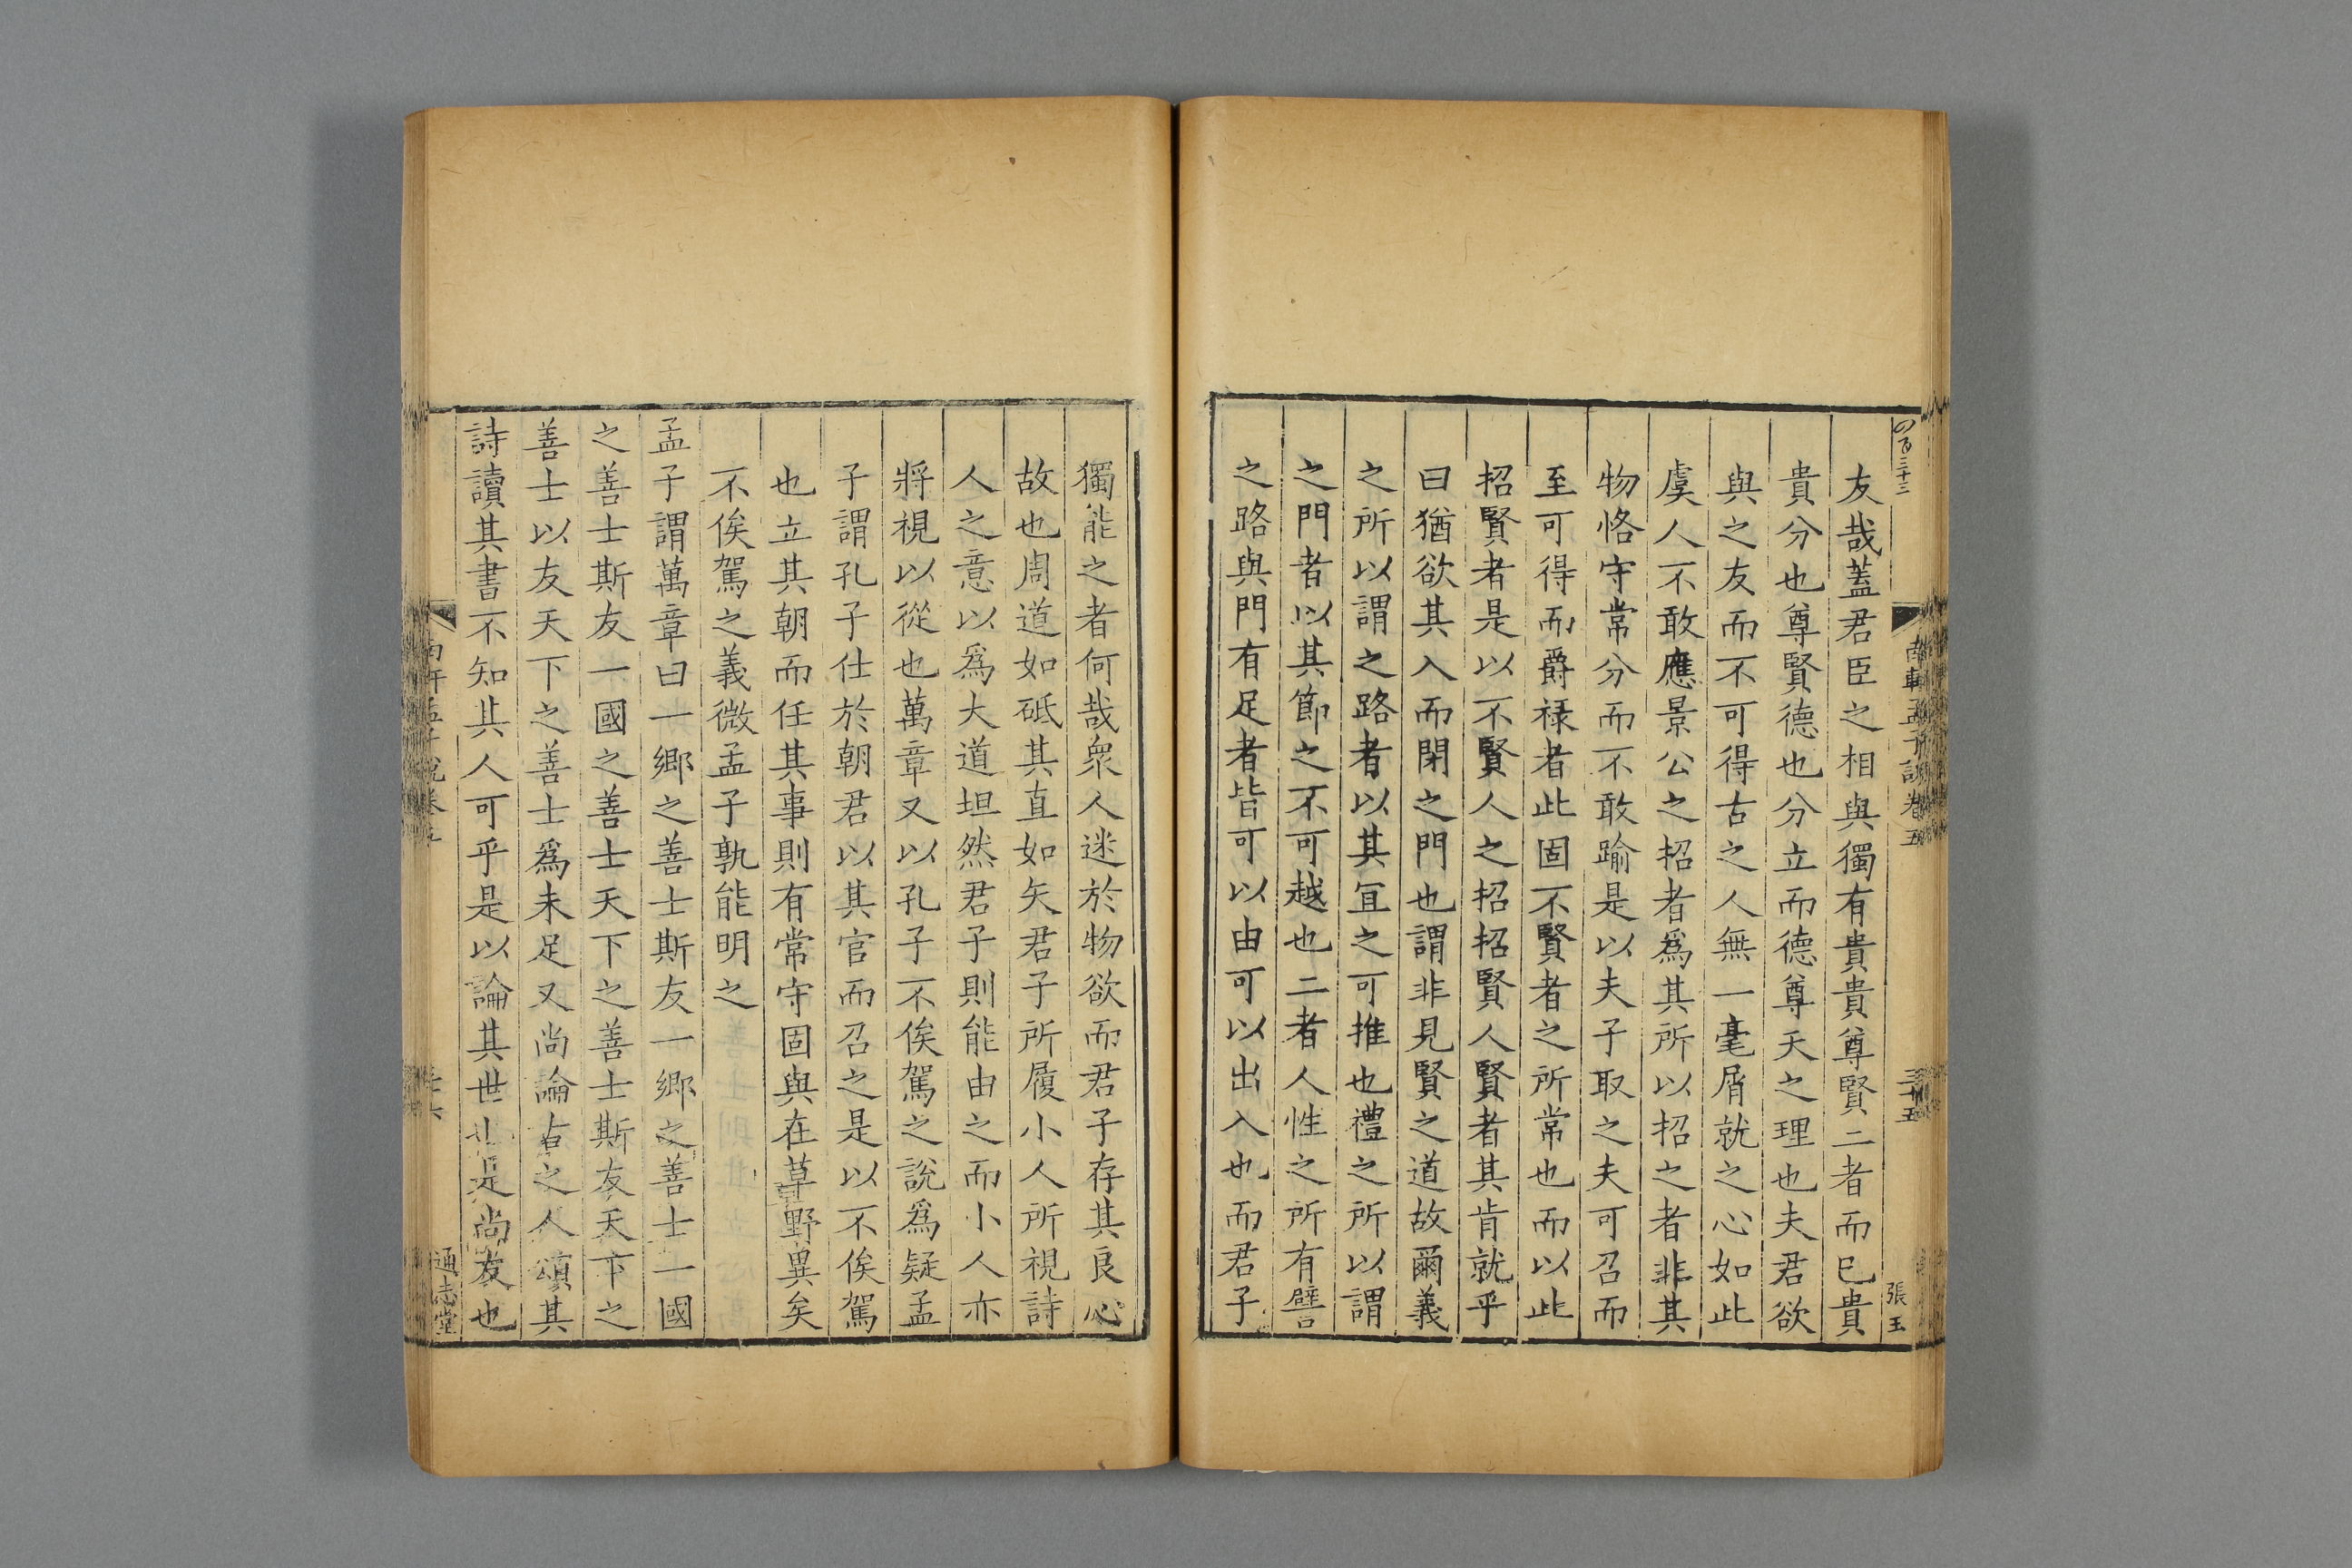 友哉蓋君臣之相與獨有貴貴尊賢二者而已貴
貴分也尊賢德也分立而德尊天之理也夫君欲
與之友而不可得古之人無一毫屑就之心如此
虞人不敢應景公之招者爲其所以招之者非其
物恪守常分而不敢踰是以夫子取之夫可召而
至可得而爵禄者此固不賢者之所常也而以此
招賢者是以不賢人之招招賢人賢者其肯就乎
曰猶欲其入而閉之門也謂非見賢之道故爾義
之所以謂之路者以其宜之可推也禮之所以謂
之門者以其節之不可越也二者人性之所有譬
之路與門有足者皆可以由可以出入也而君子
南軒孟子說卷五
三十五
張玉
獨能之者何哉衆人迷於物欲而君子存其良心
故也周道如砥其直如矢君子所履小人所視詩
人之意以爲大道坦然君子則能由之而小人亦
將視以從也萬章又以孔子不俟駕之說爲疑孟
子謂孔子仕於朝君以其官而召之是以不俟駕
也立其朝而任其事則有常守固與在草野異矣
不俟駕之義微孟子孰能明之
孟子謂萬章曰一鄉之善士斯友一鄉之善士一國
之善士斯友一國之善士天下之善士斯友天下之
善士以友天下之善士爲未足又尚論古之人頌其
詩讀其書不知其人可乎是以論其世也是尚友也
通志堂